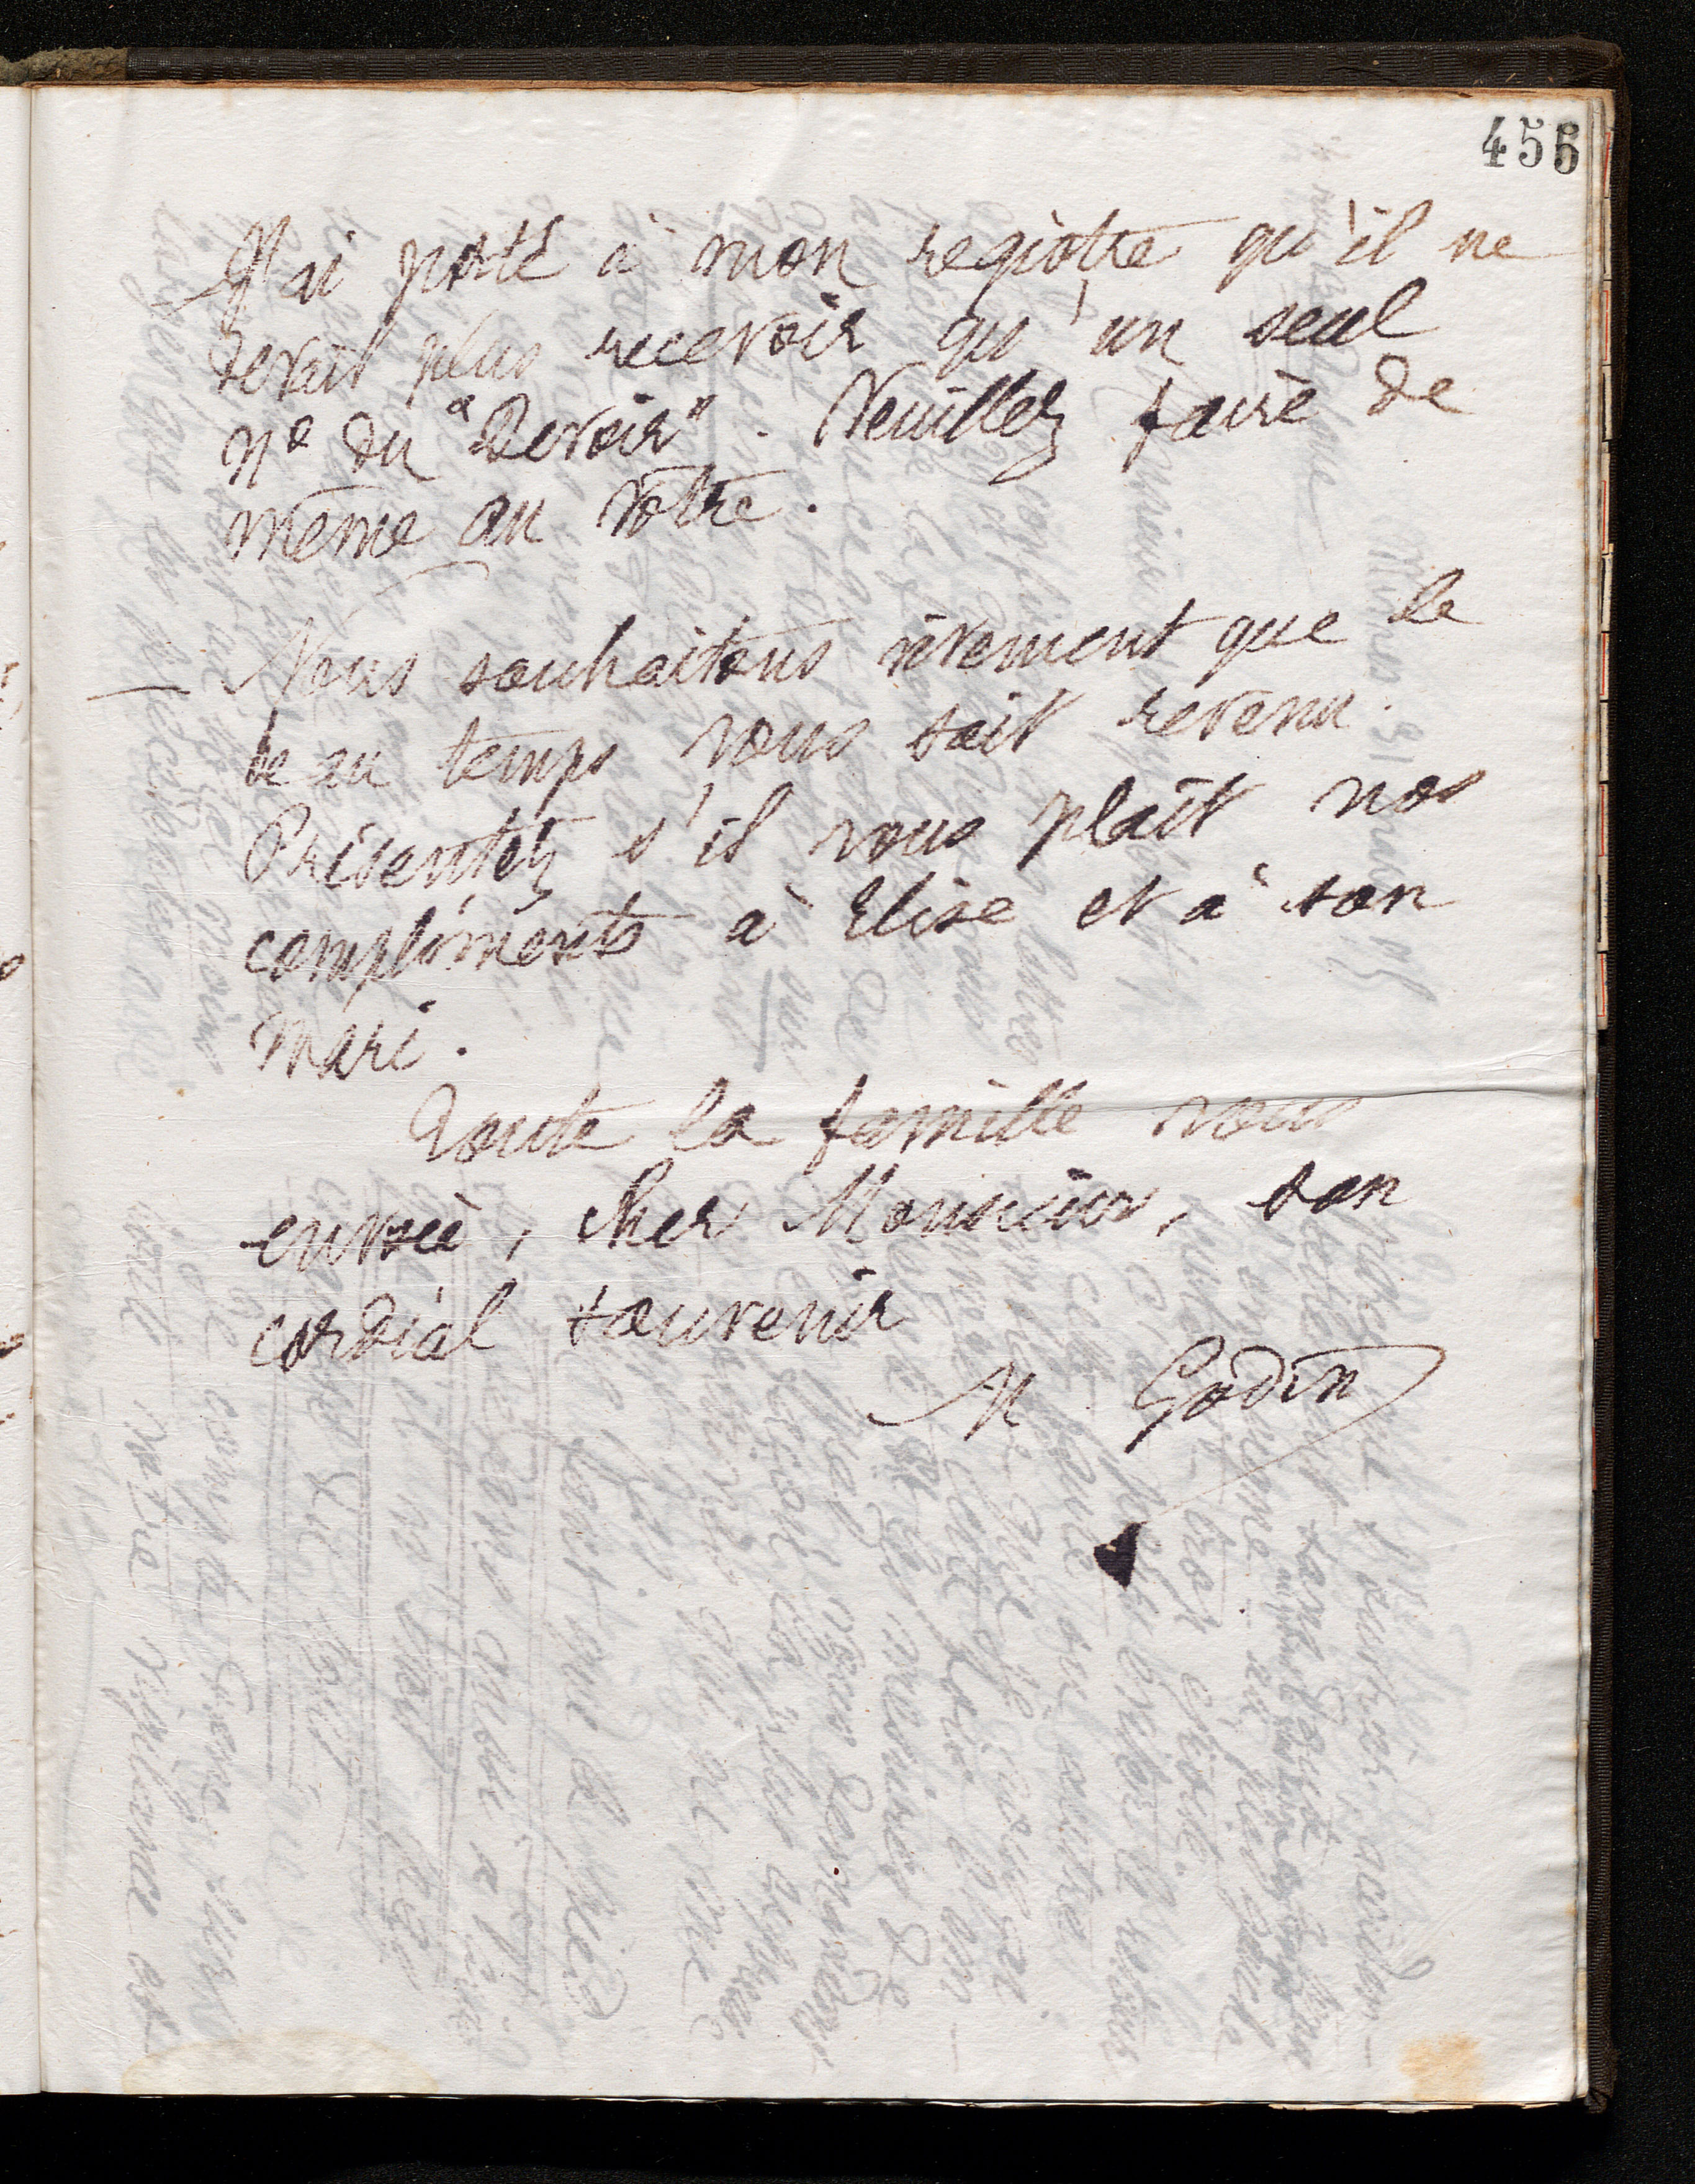 455
J'ai porté à mon registre qu'il ne
devait plus recevoir qu'un seul
No du "Devoir". Veuillez faire de
même au vôtre.
— Nous souhaitons vivement que le
beau temps vous soit revenu.
Présentez s'il vous plaît nos
compliments à Elise et à son
mari.
Toute la famille vous
envoie, cher Monsieur, son
cordial souvenir
M Godin